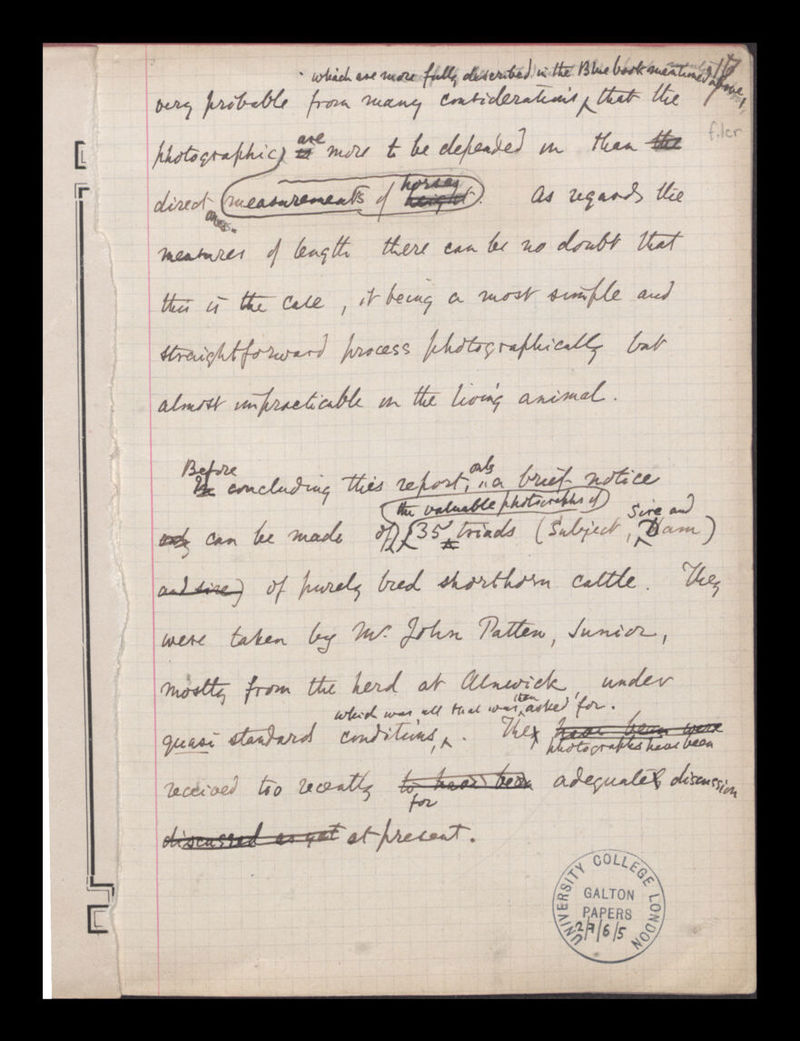 which are more fully described in the Blue book mentioned above,
very probable from many considerations that the
f.1cr
are
photographic is more to be depended on than the
horses
direct measurements of height. As regards the
measures of length there can be no doubt that
this is the case, it being a most simple and
straightforward process photographically but
almost impracticable on the living animal.
Before only
In concluding this report, a brief notice
the valuable photographs of Sire and
only can be made of 35 triads (Subject, Dam)
and sire) of purely bred shorthorn cattle. They
were taken by Mr. John Patten, Junior,
mostly from the herd at Alnwick, under
which was all that was then asked for.
quasi standard conditions. They have been were
photographs have been
received too recently to have been adequate discussion
for
discussed as yet at present.
UNIVERSITY COLLEGE LONDON
GALTON
PAPERS
2/7/6/5